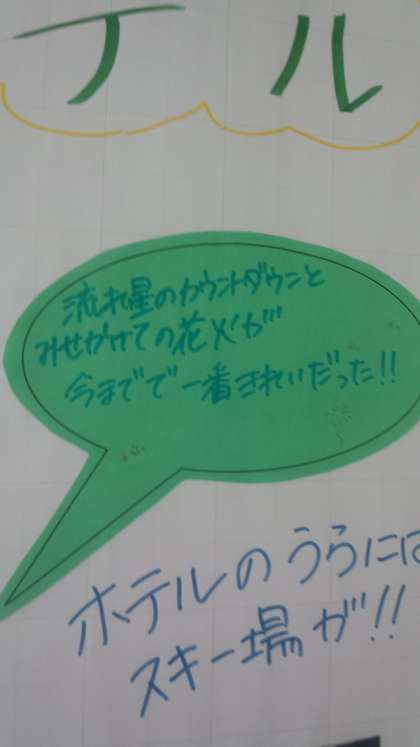 テル
流れ星のカウントダウンと
みせかけての花火が
今までで一番きれいだった!!
ホテルのうらには
スキー場が!!